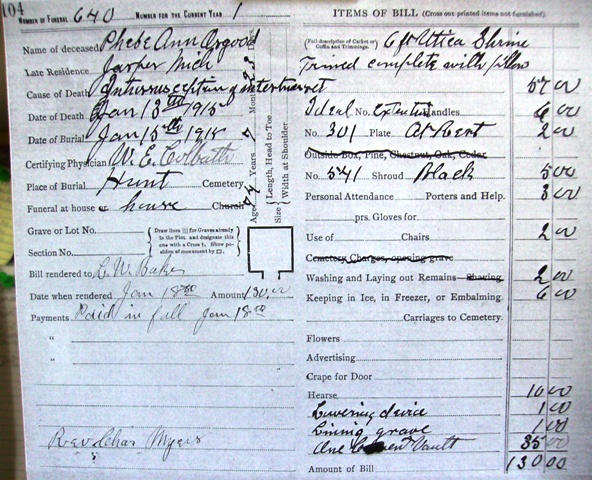 104
NUMBER OF FUNERAL 640 NUMBER FOR THE CURRENT YEAR 1
Name of deceased Phebe Ann Osgood
Late Residence Jasper Mich
Cause of Death Intussusception
Date of Death Jan 13th 1915
Date of Burial Jan 15th 1915
Certifying Physician W. E.
Place of Burial Hunt Cemetery
Funeral at house or house Church
Age Years Months
Size { Length, Head to Toe
Width at Shoulder
Grave or Lot No.
Section No.
{ Draw lines for Graves already in the Plot and designate this one with a Cross †. Show position of monument by □. }
Bill rendered to C. W. Baker
Date when rendered Jan 18th Amount 130.00
Payments Paid in full Jan 18th
"
"
Rev Chas Myers
ITEMS OF BILL (Cross out printed items not furnished).
(Full description of Casket or Coffin and Trimmings.) Utica Shrine
Trimed complete with pillow
57 00
Ideal No. Extention Handles 6 00
No. 301 Plate At Rest 2 00
Outside Box, Pine, Chestnut, Oak, Cedar
No. 541 Shroud Black 5 00
Personal Attendance Porters and Help. 3 00
prs. Gloves for
Use of Chairs 2 00
Cemetery Charges, opening grave
Washing and Laying out Remains Shaving 2 00
Keeping in Ice, in Freezer, or Embalming. 6 00
Carriages to Cemetery.
Flowers
Advertising
Crape for Door
Hearse 10 00
Lowering device 1 00
Lining grave 1 00
One Vault 35 00
Amount of Bill 130 00